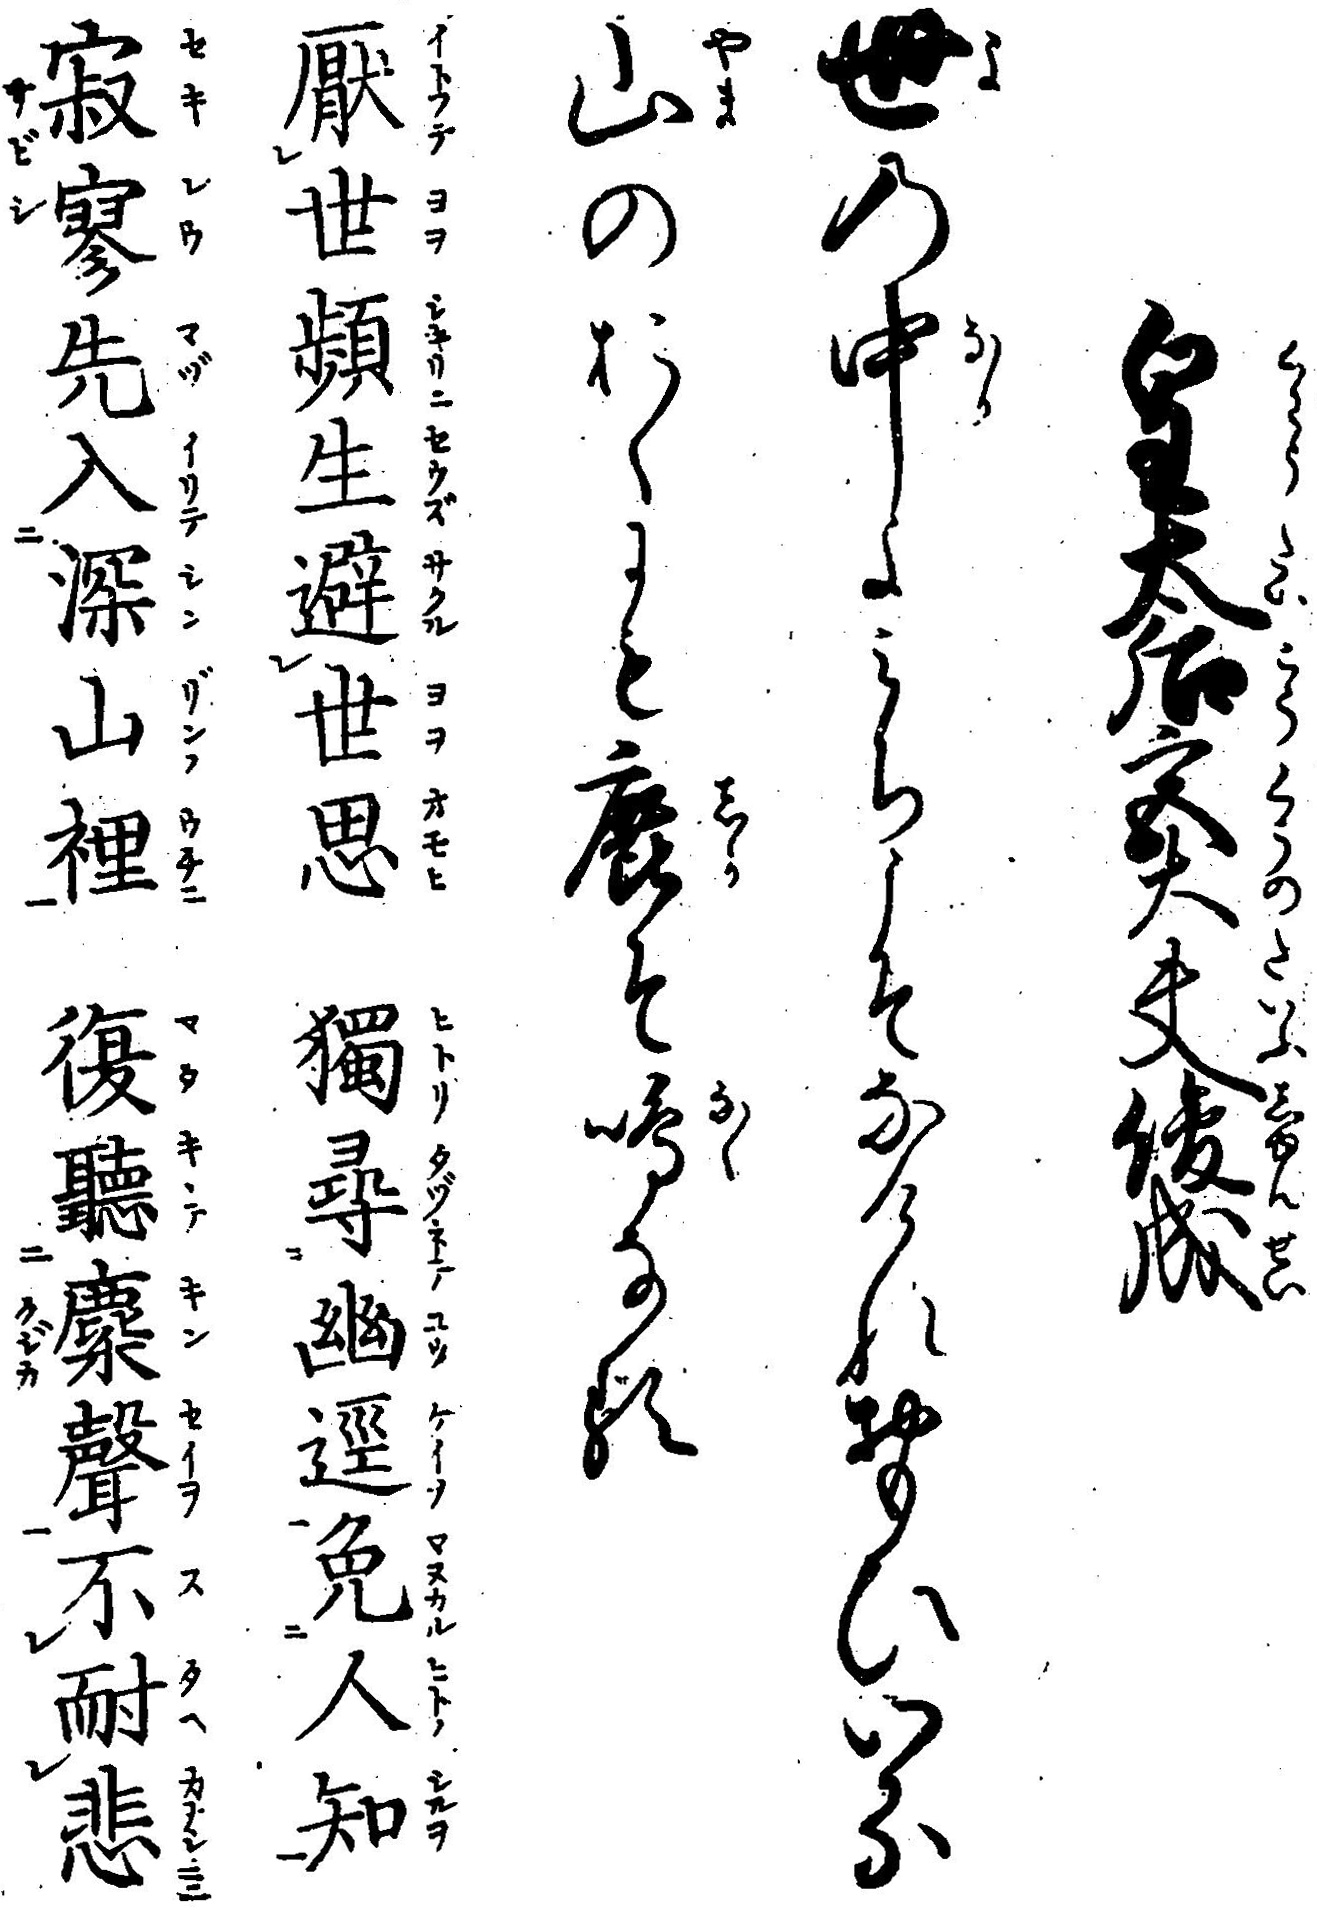 皇太后宮大夫俊成
世の中よみちこそなけれおもひいる
山のおくにも鹿そ鳴なる
厭世頻生避世思 獨尋幽逕免人知
寂寥先入深山裡 復聽麇聲不耐悲